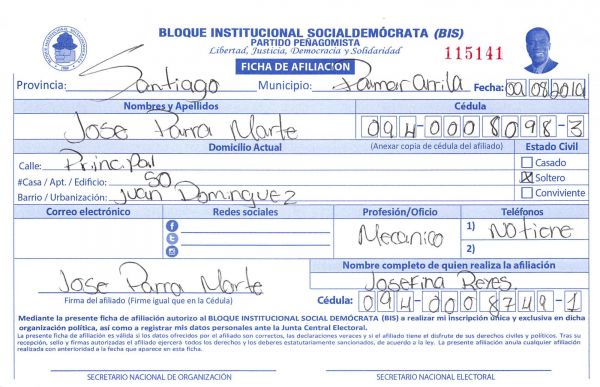 BLOQUE INSTITUCIONAL SOCIALDEMÓCRATA (BIS)
PARTIDO PEÑAGOMISTA
Libertad, Justicia, Democracia y Solidaridad
115141
FICHA DE AFILIACION
Provincia: Santiago Municipio: Fecha:
Nombres y Apellidos Cédula
Jose Parra Marte 094-0008098-3
Domicilio Actual (Anexar copia de cédula del afiliado) Estado Civil
Calle: Principal Casado
#Casa / Apt. / Edificio: 50 X Soltero
Barrio / Urbanización: Juan Dominguez Conviviente
Correo electrónico Redes sociales Profesión/Oficio Teléfonos
Mecanico 1) No tiene
2)
Nombre completo de quien realiza la afiliación
Jose Parra Marte Josefina Reyes
Firma del afiliado (Firme igual que en la Cédula) Cédula: 094-0008749-1
Mediante la presente ficha de afiliación autorizo al BLOQUE INSTITUCIONAL SOCIAL DEMÓCRATA (BIS) a realizar mi inscripción única y exclusiva en dicha
organización política, así como a registrar mis datos personales ante la Junta Central Electoral.
La presente ficha de afiliación es válida si los datos ofrecidos por el afiliado son correctos, las declaraciones veraces y si el afiliado tiene el disfrute de sus derechos civiles y políticos. Tras su
recepción, sello y firmas autorizadas el afiliado ejercerá todos los derechos y los deberes estatutariamente sancionados, de acuerdo a la ley. La presente afiliación anula cualquier afiliación
realizada con anterioridad a la fecha que aparece en esta ficha.
SECRETARIO NACIONAL DE ORGANIZACIÓN SECRETARIO NACIONAL ELECTORAL